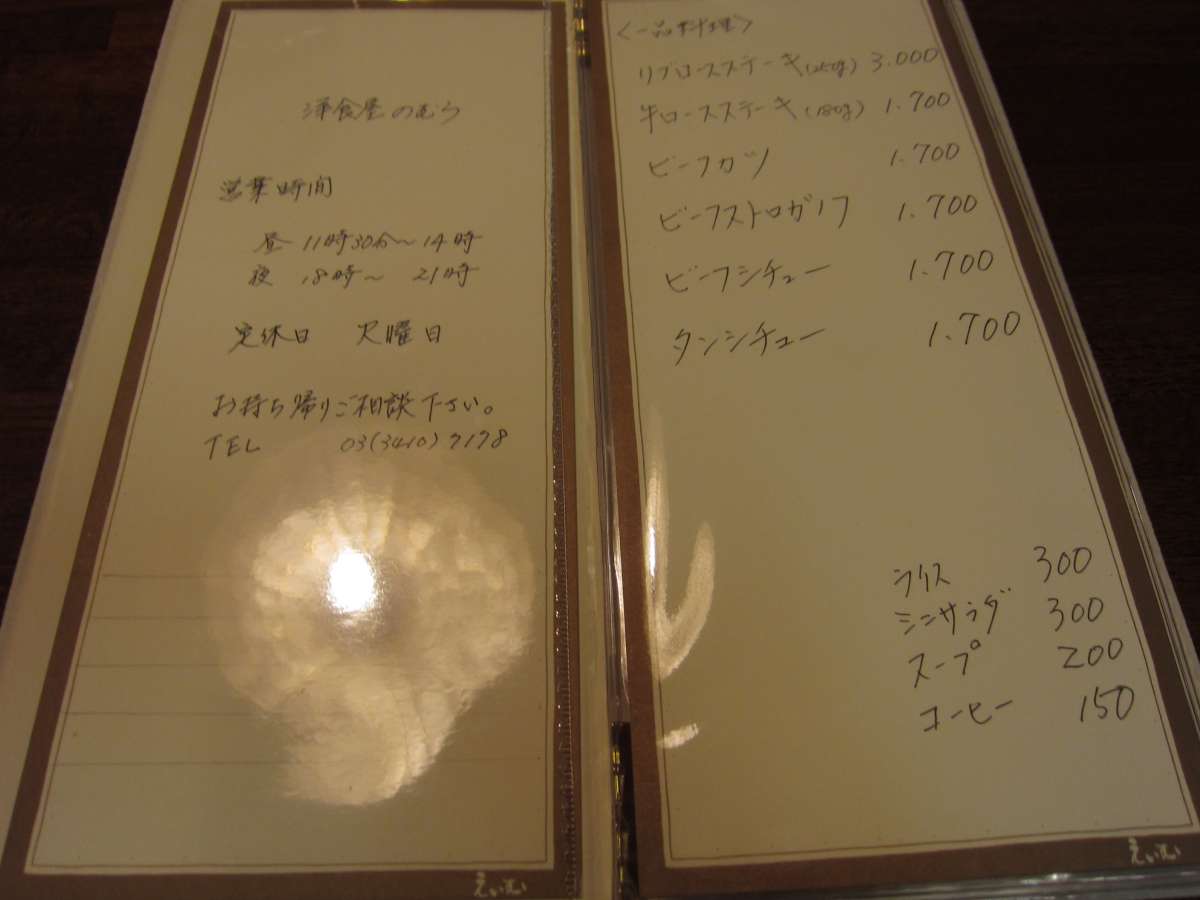 洋食屋のむら
営業時間
昼 11時30分〜14時
夜 18時〜 21時
定休日 火曜日
お持ち帰りご相談下さい。
TEL 03(3410)7178
えいむ
〈一品料理〉
リブロースステーキ(250g) 3.000
牛ロースステーキ(180g) 1.700
ビーフカツ 1.700
ビーフストロガノフ 1.700
ビーフシチュー 1.700
タンシチュー 1.700
ライス 300
ミニサラダ 300
スープ 200
コーヒー 150
えいむ